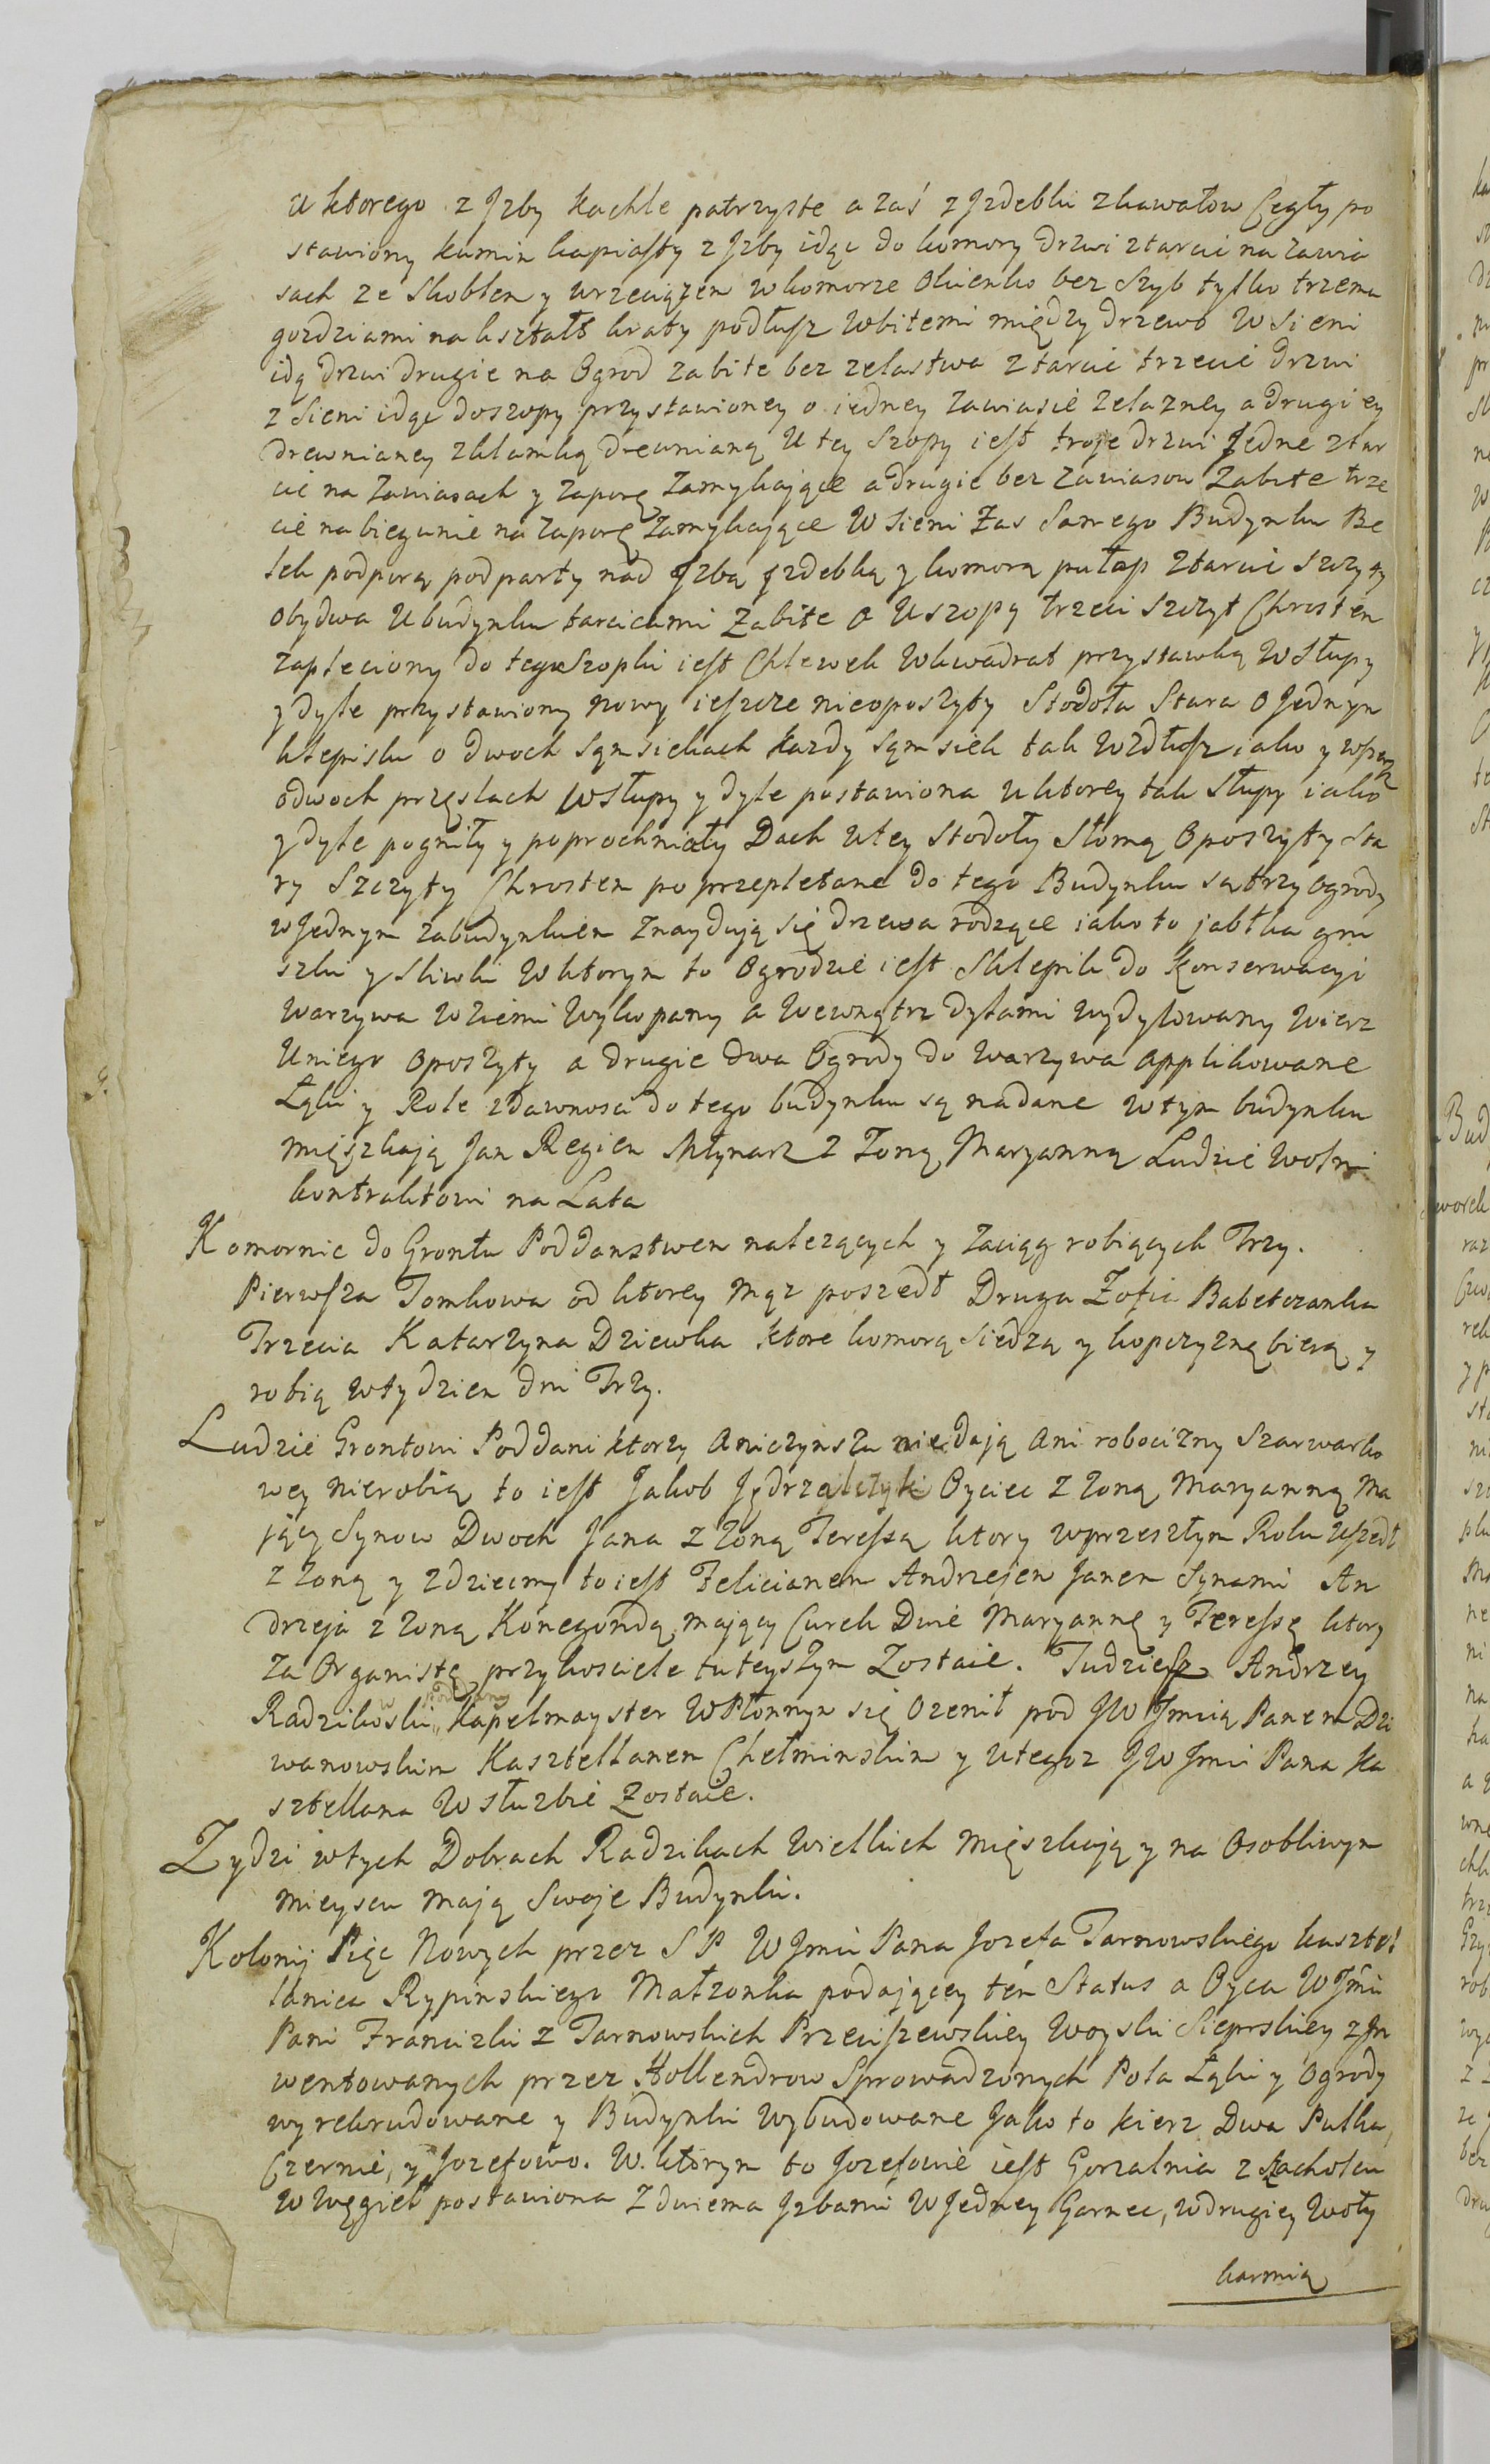 u ktorego z Jzby kachle patrzyste a zaś z Jzdebki z kawałow Cegły po
stawiony kamin kapiasty z Jzby idąc do komory drzwi z tarcic na zawia
sach ze skoblem y wrzeciązem w komorze Okienko bez Szyb tylko trzema
gozdziami na kształt kraty podłusz wbitemi między drzewo W Sieni
idą drzwi drugie na Ogrod zabite bez zelastwa z tarcic trzecie drzwi
z Sieni idąc do szopy przystawioney o iedney zawiasie zelazney a drugiey
drewnianey z klamką drewnianą U tey Szopy iest troje drzwi Jedne z tar
cic na Zawiasach y zaporę zamykające a drugie bez zawiasow Zabite trze
cie na biegunie na zaporę zamykające W Sieni zas Samego Budynku Be
lek podporą podparty nad Jzbą Jzdebką y komorą pułap z tarcic Szczyty
obydwa U budynku tarcicami Zabite a U szopy trzeci szczyt Chrostem
zapleciony do tey Szopki iest Chlewek W kwadrat przystawką W Słupy
y dyle przystawiony nowy ieszcze nieoposzyty Stodoła Stara o Jednym
klepisku o dwoch sąmsiekach kazdy sąmsiek tak wzdłusz iako y wszerz
o dwoch przęslach w Słupy y dyle postawiona u ktorey tak Słupy iako
y dyle pogniły y poprochniały Dach u tey Stodoły Słomą Oposzyty Sta
ry Szczyty Chrostem poprzepletane do tego Budynku są trzy ogrody
w Jednym za budynkiem Znayduią się drzewa rodzące iako to jabłka gru
szki y Sliwki W ktorym to Ogrodzie iest Sklepik do konserwacyi
Warzywa w ziemi Wykopany a wewnątrz dylami wydylowany wierz
U niego Oposzyty a drugie dwa Ogrody do Warzywa applikowane
Łąki y Role z dawnosci do tego budynku są nadane w tym budynku
mięszkają Jan Regien Młynarz z Zoną Maryanną Ludzie Wolni
kontraktowi na Lata
Komornic do Grontu Poddanstwem nalezących y Zaciąg robiących Trzy.
Pierwsza Tomkowa od ktorey mąz poszedł Druga Zofia Babetczanka
Trzecia Katarzyna Dziewka ktore komorą siedzą y kopczyznę biorą y
robią w tydzien dni Trzy.
Ludzie Grontowi Poddani ktorzy ani czynszu nie dają ani robocizny Szarwarko
wey nie robią to iest Jakob Jędrzeyczyk Oyciec z Zoną Maryanną Ma
jący Synow Dwoch Jana z Zoną Teressą ktory w przeszłym Roku uszedł
z Zoną y z dziecmy to iest Felicianem Andrzejem Janem Synami An
drzeja z Zoną Konegondą mający Curek Dwie Maryannę y Teressę ktory
za Organistę przy kosciele tuteyszym Zostaie. Tudziesz Andrzey
Radzikowski poddany Kapelmayster W Płonnym się Ozenił pod JW Jmcią Panem Dzi
wanowskim Kasztellanem Chełminskim y u tegoz JW Jmci Pana Ka
sztellana W słuzbie Zostaie.
Zydzi w tych Dobrach Radzikach Wielkich mięszkają y na Osobliwym
mieyscu mają Swoje Budynki.
Kolonij Pięc Nowych przez S P W Jmci Pana Jozefa Tarnowskiego kasztel
lanica Rypinskiego Małzonka podającey ten Status a Oyca W Jmci
Pani Franciszki z Tarnowskich Przeciszewskiey Woyski Sieprskiey z Jn
wentowanych przez Hollendrow Sprowadzonych Pola Łąki y Ogrody
wyrekrudowane y Budynki Wybudowane Jako to kierz Dwa Pulka,
Czernie, y Jozefowo. W. ktorym to Jozefowie iest Gorzalnia z Zacholcu
W Węgieł postawiona Z dwiema Jzbami W Jedney Garnec, w drugiey Woły
karmią